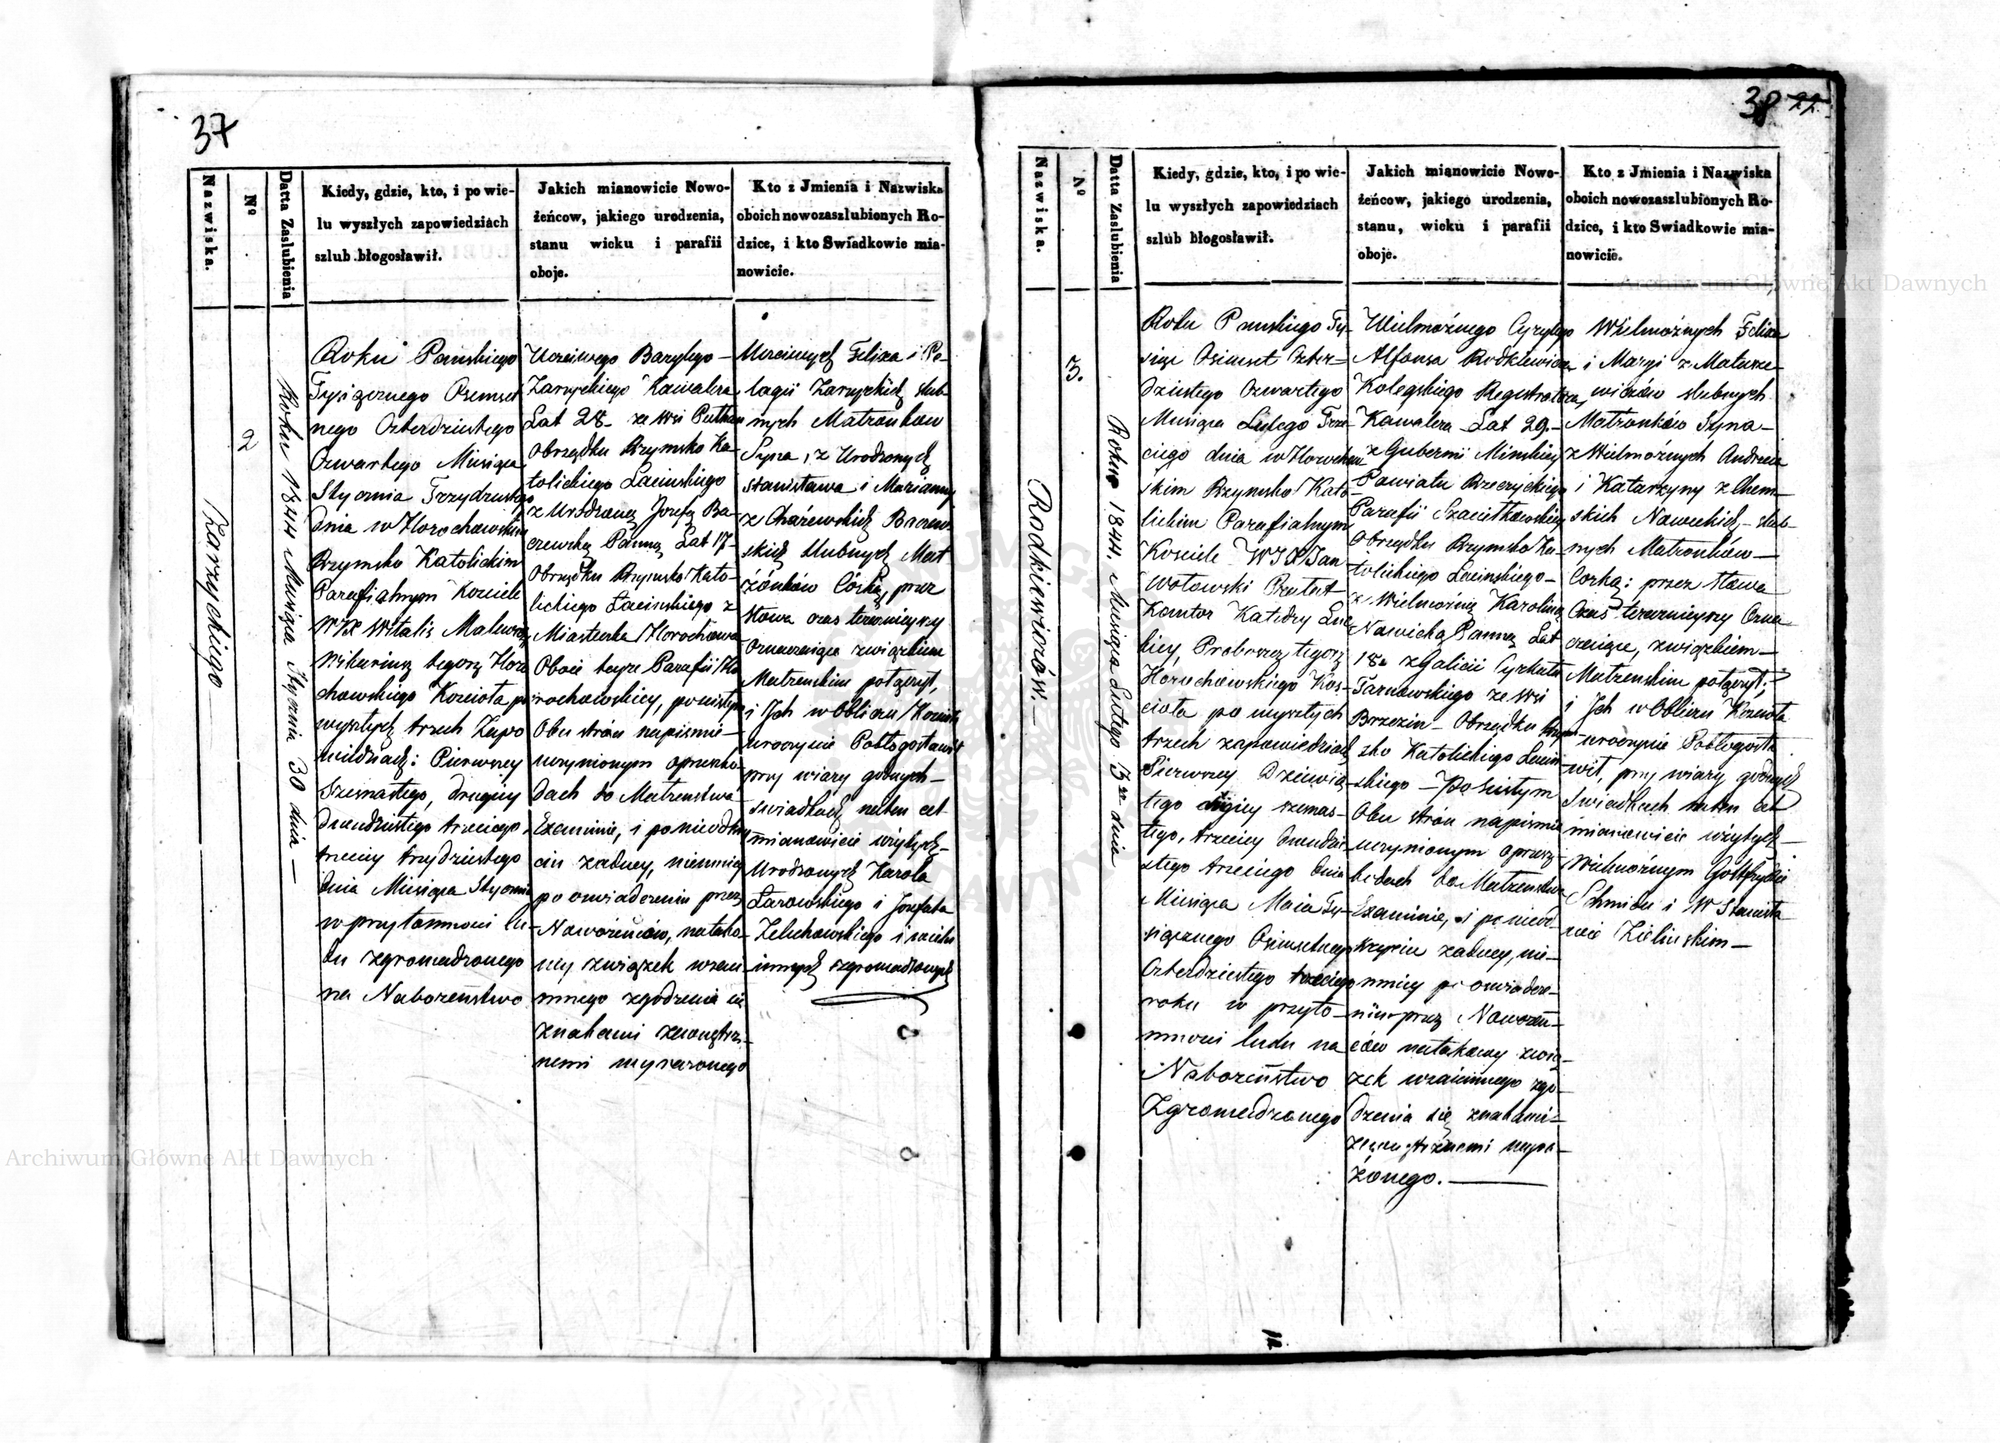 37
Nazwiska.
Nº
Datta Zaslubienia
Kiedy, gdzie, kto, i po wie-
lu wyszłych zapowiedziach
szlub błogosławił.
Jakich mianowicie Nowo-
żeńcow, jakiego urodzenia,
stanu wieku i parafii
oboje.
Kto z Jmienia i Nazwiska
oboich nowozaszlubionych Ro-
dzice, i kto Swiadkowie mia-
nowicie.
2
Roku 1844 Miesiąca Stycznia 30 dnia —
Roku Pańskiego
Tysiącznego Osmset
nego Czterdziestego
Czwartego Miesiąca
Stycznia Trzydziestego
Dnia w Horochowskim
Rzymsko Katolickim
Parafialnym Kosciele
Wikariusz tegoż Horo
chowskiego Koscioła po
wyszłych trzech Zapo
wiedziach: Pierwszey
Szesnastego, drugiey
Dwudziestego trzeciego,
trzeciey trzydziestego
dnia Miesiąca Stycznia
w przytomnosci lu-
du zgromadzonego
na Nabożeństwo
Kawalera
Lat 28 - ze Wsi
Obrządku Rzymsko Ka-
tolickiego Łacinskiego
z Urodzoną Jozefą Ba-
czewską Panną Lat 17-
Obrządku Rzymsko Kato-
lickiego Łacinskiego z
Miasteczka Horochowa
Oboie teyże Parafii Ho
rochowskiey, po scisłym
Obu strón napismie
uczynionym o przeszko
dach do Małżenstwa
Examinie, i po nieodkry
ciu żadney, niemniey
po oswiadczeniu przez
Nowożeńców, na tako-
wy związek wzaie
mnego zgodzenia się
znakami zewnętrz-
nemi wyrażonego
Felixa i Pe-
lagii slub-
nych Małżonków
Syna, z Urodzonych
Stanisława i Marianny
z Baczew
skich slubnych Mał
żónków Córką, przez
słowa czas teraznieyszy
Oznaczaiące związkiem
Małżenskim połączył,
i Jch w Obliczu Kosciola
uroczyscie Pobłogosławił
przy wiary godnych —
swiadkach na ten cel
mianowicie użytych —
Urodzonych Karola
i Jozefata
Zeluchowskiego i wielu
innych zgromadzonych
38 22.
Nazwiska.
Nº
Datta Zaslubienia
Kiedy, gdzie, kto, i po wie-
lu wyszłych zapowiedziach
szlub błogosławił.
Jakich mianowicie Nowo-
żeńcow, jakiego urodzenia,
stanu, wieku i parafii
oboje.
Kto z Jmienia i Nazwiska
oboich nowozaszlubionych Ro-
dzice, i kto Swiadkowie mia-
nowicie.
Radkiewiczów. —
3.
Roku 1844. Miesiąca Lutego 3 dnia
Roku Panskiego Ty-
siąc Osimset Czter-
dziestego Czwartego
Miesiąca Lutego Trze
ciego dnia w Horochow
skim Rzymsko Kato-
lickim Parafialnym
Kosciele W J X Jan
Wołowski Prałat
Kantor Katedry Łuc
kiey, Proboszcz tegoż
Horochowskiego Kos-
ciola po wyszłych
trzech zapowiedziach
Pierwszey Dziewią-
tego drugiey szesnas-
tego, trzeciey dwudzie-
stego trzeciego dnia
Miesiąca Maia Ty-
siącznego Osimsetnego
Czterdziestego trzeciego
roku w przyto-
mnosci ludu na
Nabożeństwo
Zgromadzonego
Wielmożnego Cyryllego
Alfonsa Radkiewicza
Kolegskiego Registratora,
Kawalera Lat 29.—
z Gubernii Minskiey
Powiatu Rzeczyckiego
Parafii
Obrządku Rzymsko Ka-
tolickiego Łacinskiego —
z Wielmożną Karoliną
Nawicką Panną Lat
18. z Galicii Cyrkułu
Tarnowskiego ze Wsi
Brzezin — Obrządku Rzym
sko Katolickiego Łacin
skiego — Po scisłym
Obu strón napismie
uczynionym o przesz-
kodach do Małżenstwa
Examinie, i po nieod-
kryciu żadney, nie-
mniey po oswiadcze-
niu przez Nowożeń-
ców na takowy zwią-
zek wzaiemnego zgo-
dzenia się znakami
zewnętrznemi wyra-
żonego. —
Wielmożnych Felixa
i Maryi z Matusze-
wiczów slubnych
Małżonków Syna —
z Wielmożnych Andrzeia
i Katarzyny z Chem-
skich Nawickich — slub-
nych Małżonków —
Córką; przez słowa
Czas teraznieyszy Ozna
czaiące, związkiem —
Małżenskim połączył;
i Jch w Obliczu Kosciola
uroczyscie Pobłogosła
wił, przy wiary godnych
Swiadkach na ten cel
mianowicie użytych —
Wielmożnym Gottfrydzie
Schmidt i W Stanisła
wie Zielinskim —
Archiwum Główne Akt Dawnych
Archiwum Główne Akt Dawnych